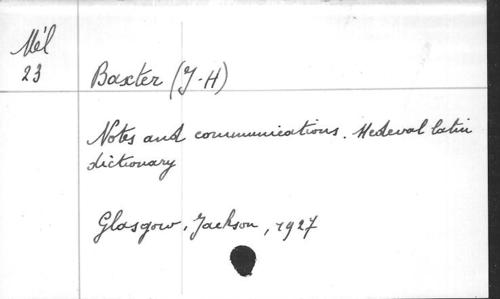 Mél
23
Baxter (J-H)
Notes and communications. Medeval latin
dictionary
Glasgow, Jackson, 1927